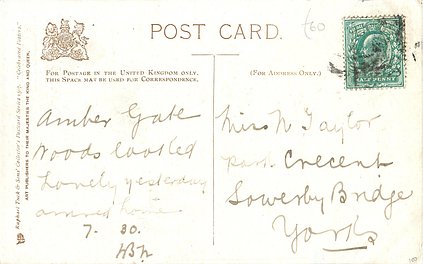 £60
POST CARD.
FOR POSTAGE IN THE UNITED KINGDOM ONLY,
THIS SPACE MAY BE USED FOR CORRESPONDENCE.
(FOR ADDRESS ONLY.)
HALFPENNY
Raphael Tuck & Sons' Collector's Postcard Series
ART PUBLISHERS TO THEIR MAJESTIES THE KING AND QUEEN.
Amber Gate
Woods looked
Lovely yesterday
arrived home
7. 30.
Miss N Taylor
Park Crecent
Sowerby Bridge
Yorks